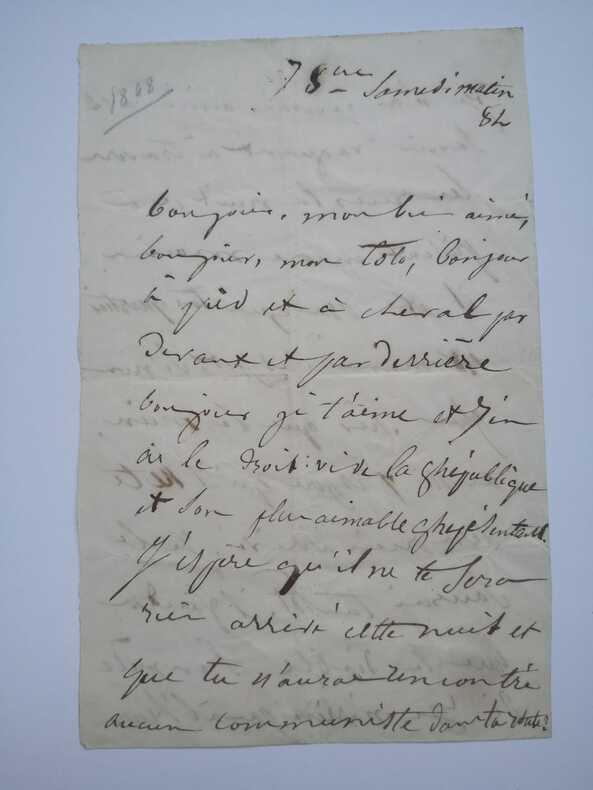 1848
7 8bre Samedi matin
8h
bonjour, mon bien aimé,
bonjour, mon Toto, bonjour
à pied et à cheval par
devant et par derrière
bonjour je t'aime et j'en
ai le droit: vive la ghépublique
et son plus aimable ghepésentant.
J'espère qu'il ne te sera
rien arrivé cette nuit et
que tu n'auras rencontré
aucun communiste dans ta route?